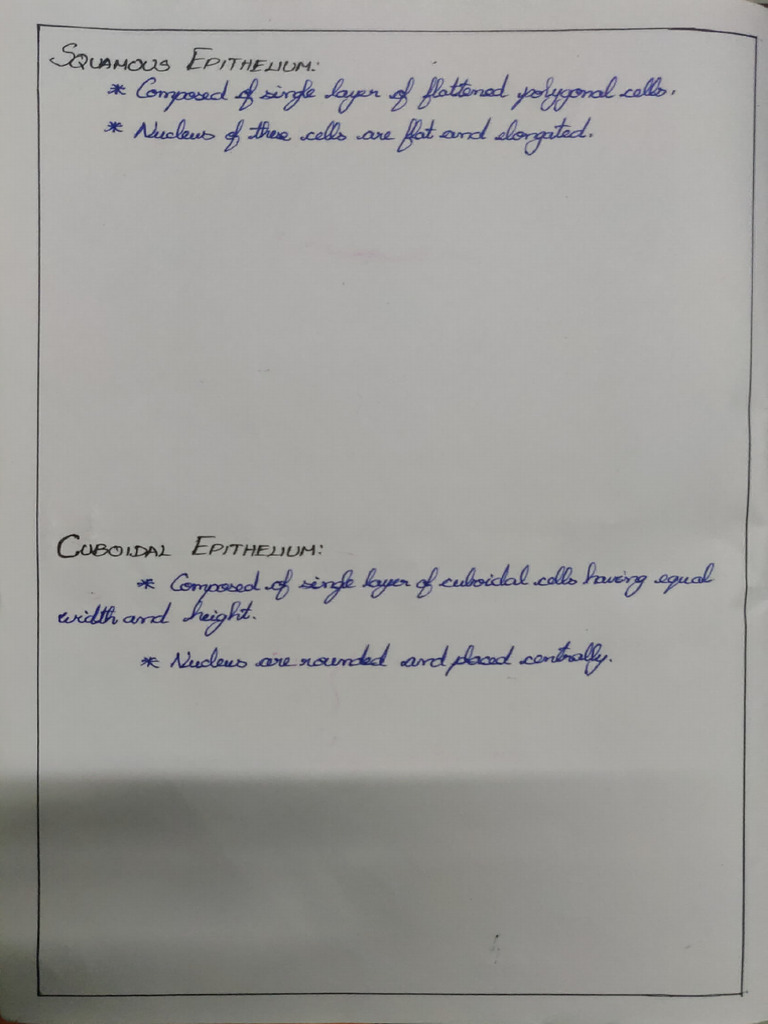 SQUAMOUS EPITHELIUM:
* Composed of single layer of flattened polygonal cells.
* Nucleus of these cells are flat and elongated.
CUBOIDAL EPITHELIUM:
* Composed of single layer of cuboidal cells having equal
width and height.
* Nucleus are rounded and placed centrally.